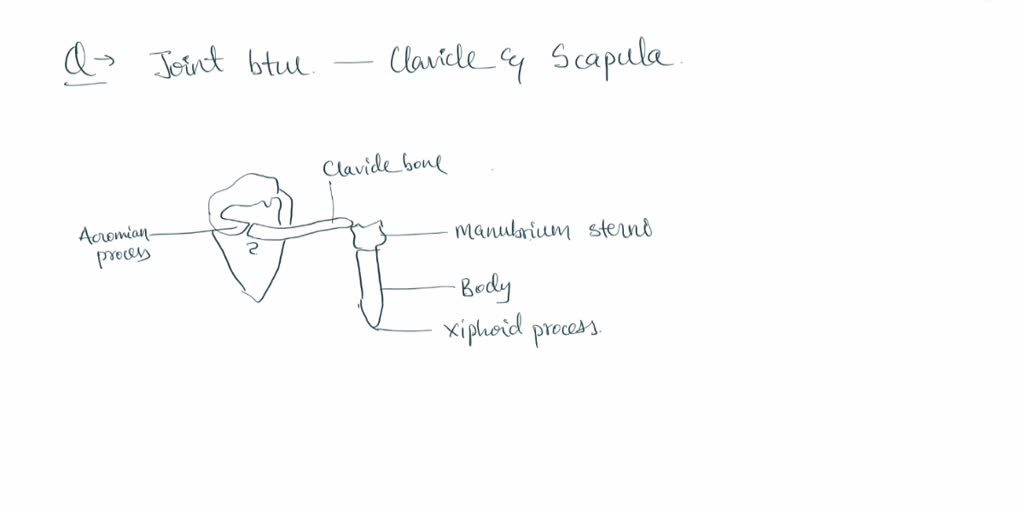 Q→ Joint btw. — Clavicle & Scapula.
Clavicle bone
Acromian
process
2
manubrium sterno
Body
xiphoid process.